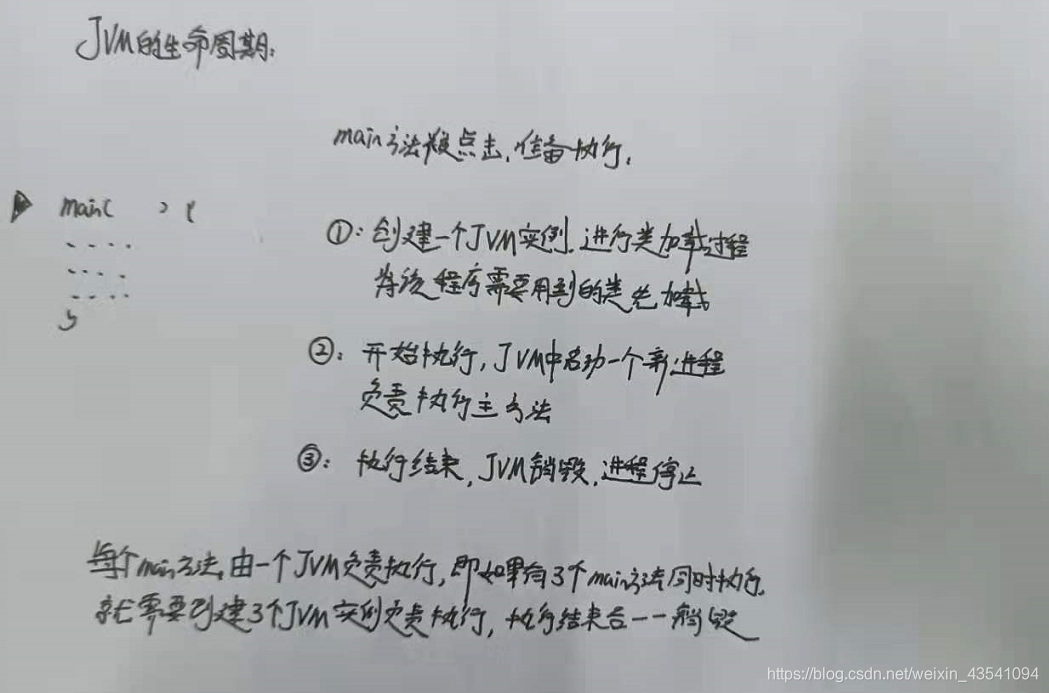 JVM的生命周期:
main方法被点击,准备执行.
main( ) {
- - - -
- - - -
- - - -
}
①: 创建一个JVM实例.进行类加载过程
将该程序需要用到的类先加载
②: 开始执行,JVM中启动一个新进程
负责执行主方法
③: 执行结束,JVM销毁.进程停止
每个main方法,由一个JVM负责执行,即如果有3个main方法同时执行,
就需要创建3个JVM实例负责执行,执行结束后一一销毁
https://blog.csdn.net/weixin_43541094